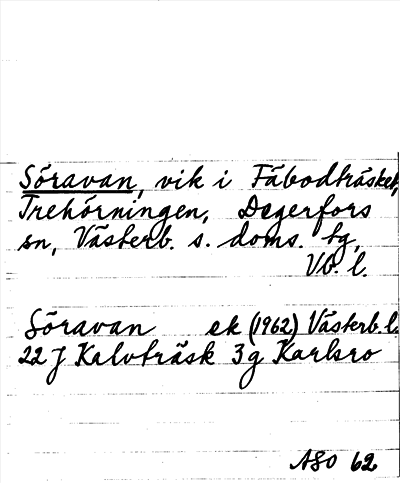 Söravan, vik i Fäbodträsket,
Trehörningen, Degerfors
sn, Västerb. s. doms. tg,
Vb. l.
Söravan ek (1962) Västerb. l.
22 J Kalvträsk 3 g Karlsro
ASO 62